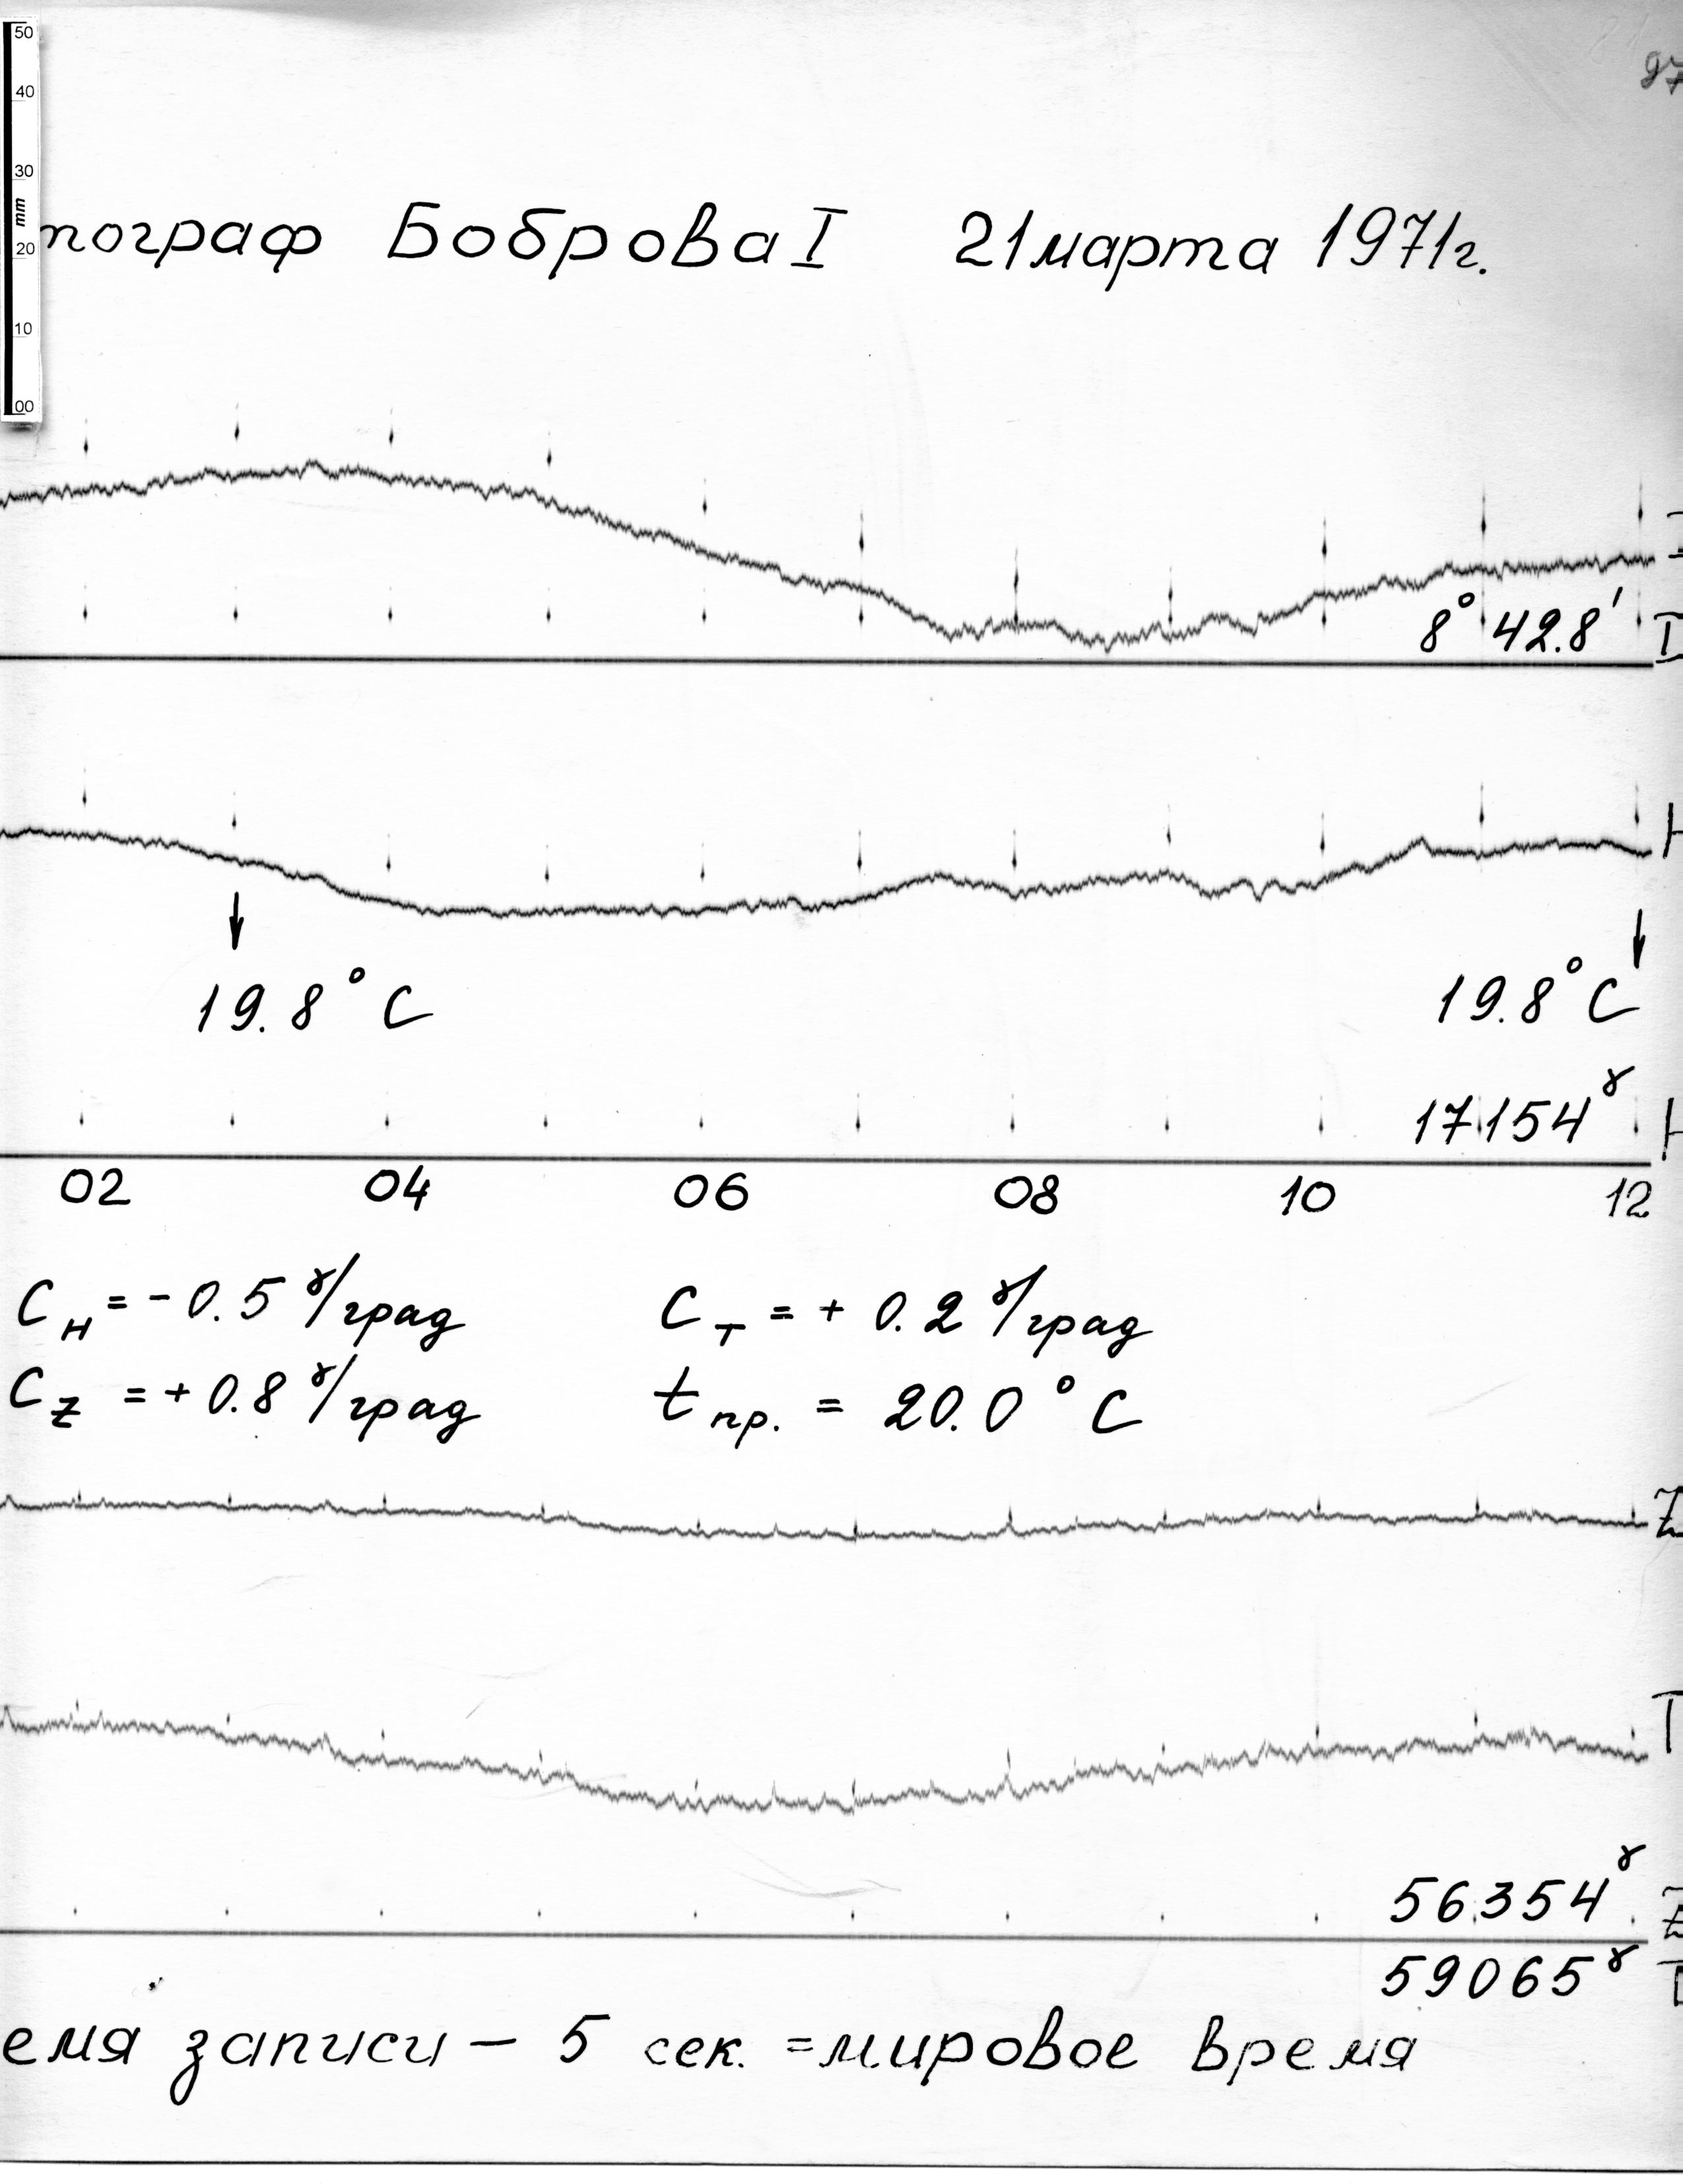 50
40
30
mm
20
10
00
97
пограф Боброва I 21 марта 1971г.
8° 42.8'
H
19.8°C 19.8°C
17154ᵞ
02 04 06 08 10 12
C_H = -0.5 ᵞ/град C_T = + 0.2 ᵞ/град
C_Z = +0.8 ᵞ/град t пр. = 20.0°C
Z
T
56354ᵞ Z
59065ᵞ T
емя записи – 5 сек. = мировое время